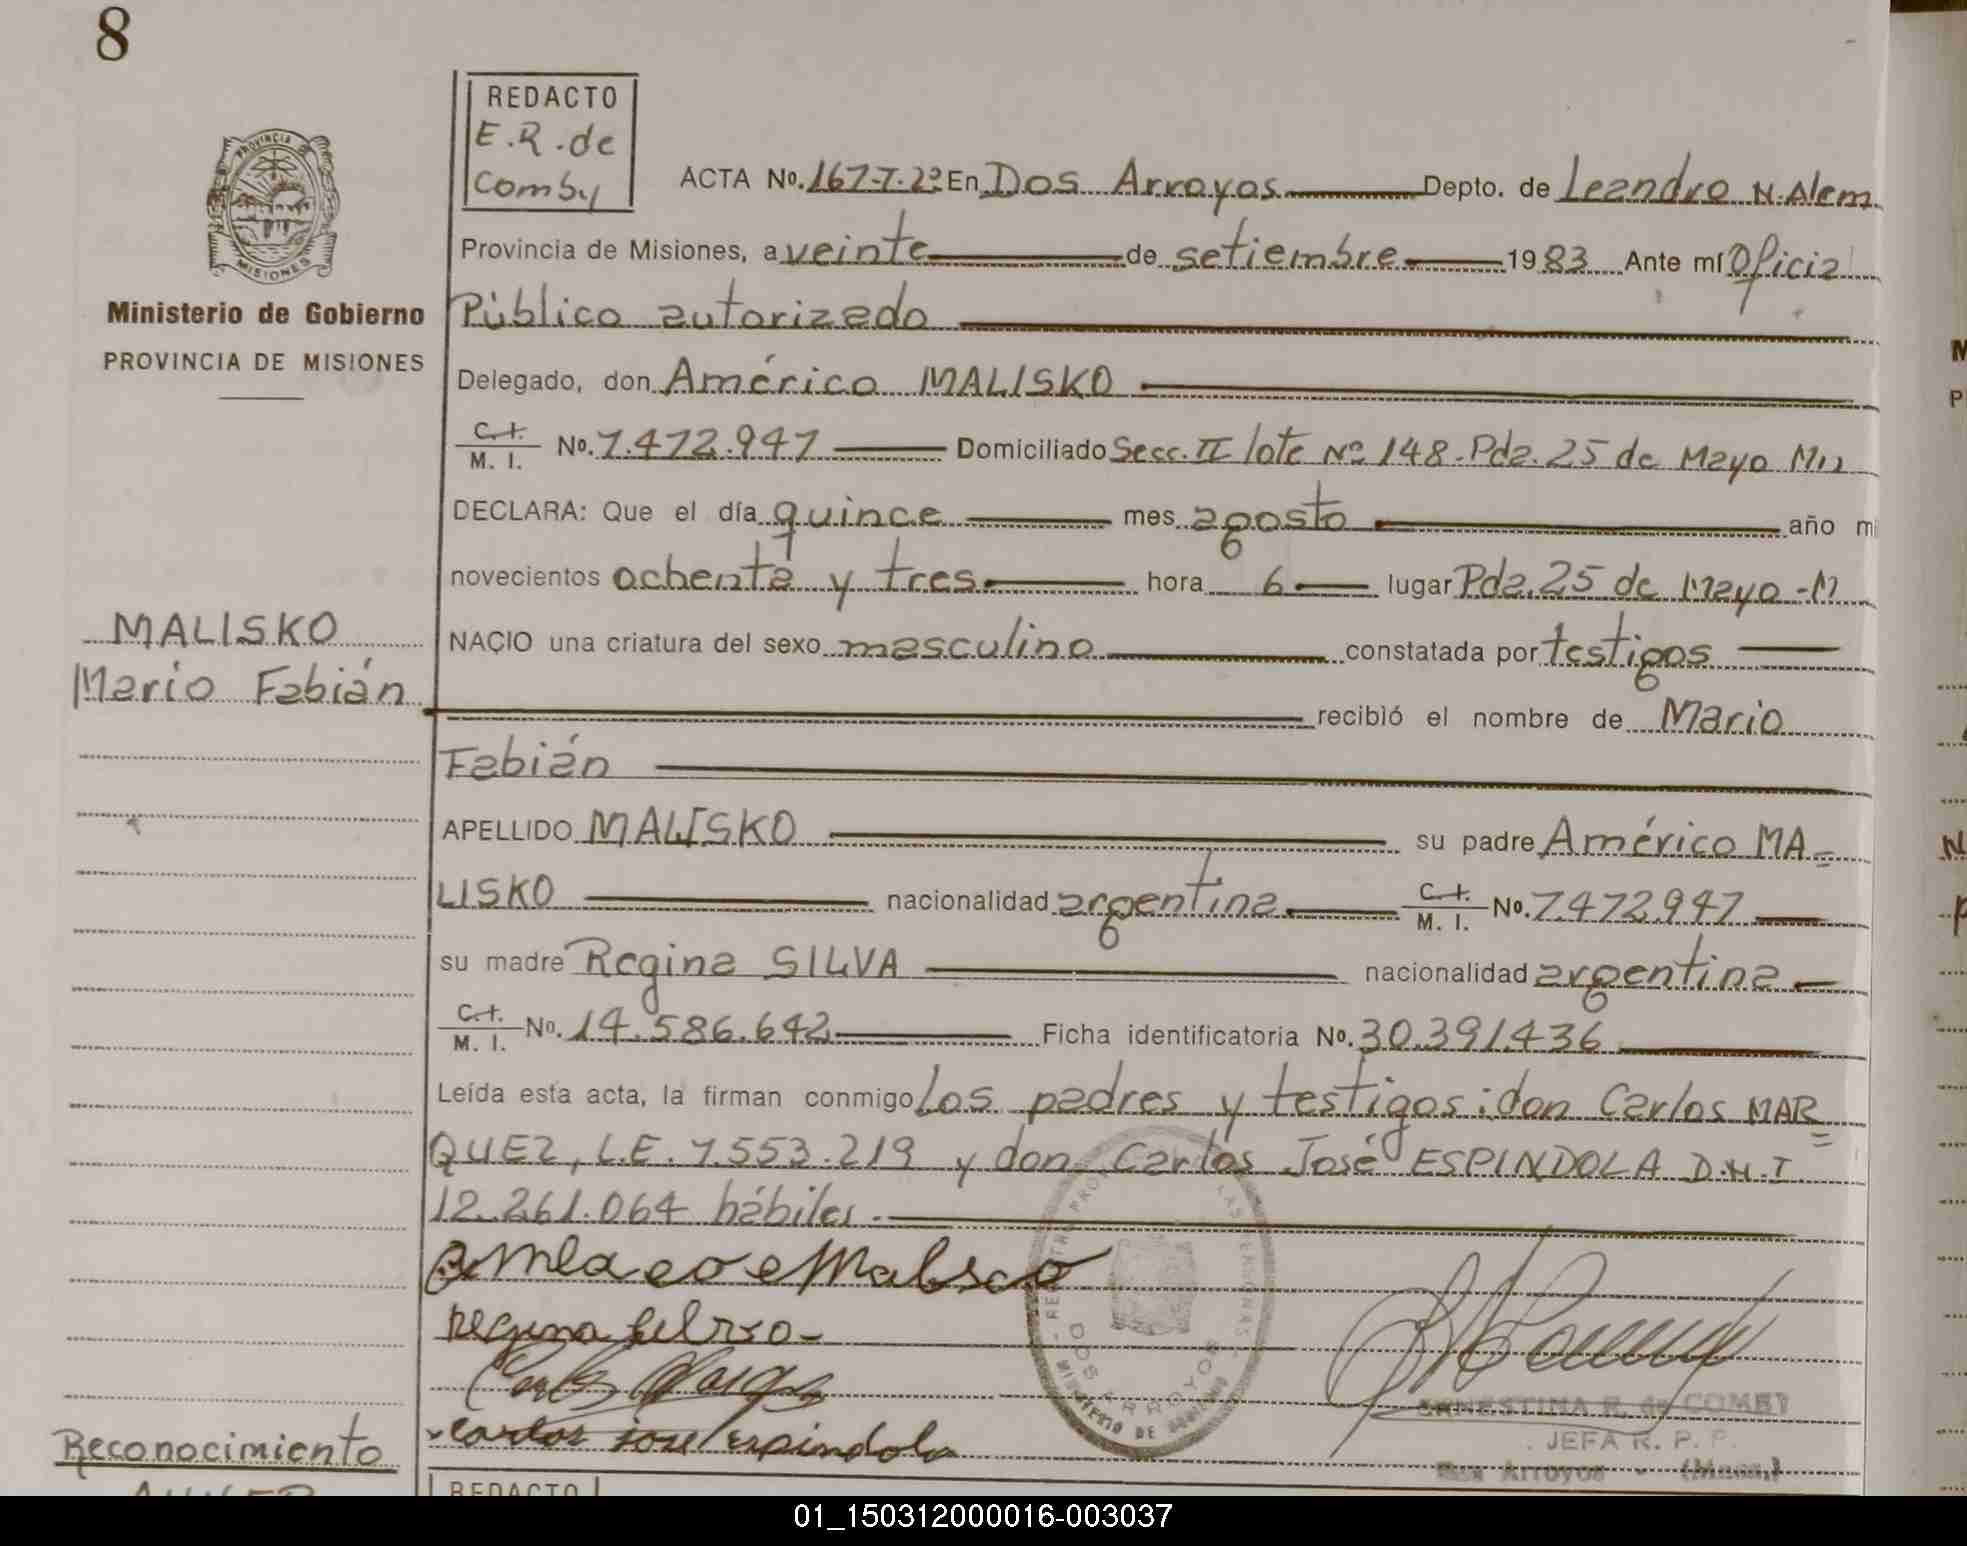 8
REDACTO
E.R. de
Comby
PROVINCIA DE
MISIONES
Ministerio de Gobierno
PROVINCIA DE MISIONES
ACTA No. 167-T.2º En Dos Arroyos Depto. de Leandro N. Alem
Provincia de Misiones, a veinte de setiembre 1983 Ante mí Oficial
Público autorizado
Delegado, don Américo MALISKO
C.I. M. I. No. 7.472.947 Domiciliado Secc. II lote Nº 148. Pda. 25 de Mayo Mnes
DECLARA: Que el día quince mes agosto año mi
novecientos ochenta y tres hora 6 lugar Pda. 25 de Mayo - M
NACIO una criatura del sexo masculino constatada por testigos
MALISKO
Mario Fabián
recibió el nombre de Mario
Fabián
APELLIDO MALISKO su padre Américo MA=
LISKO nacionalidad argentina C.I. M. I. No. 7.472.947
su madre Regina SILVA nacionalidad argentina
C.I. M. I. No. 14.586.642 Ficha identificatoria No. 30.391.436
Leída esta acta, la firman conmigo los padres y testigos: don Carlos MAR=
QUEZ, L.E. 7.553.219 y don Carlos José ESPINDOLA D.N.I
12.261.064 hábiles.-
Regina
Carlos
carlos jose espindola
DOS ARROYOS
MINISTERIO DE GOBIERNO
ERNESTINA R. de COMBY
JEFA R. P. P.
Dos Arroyos - (Mnes.)
Reconocimiento
REDACTO
01_150312000016-003037